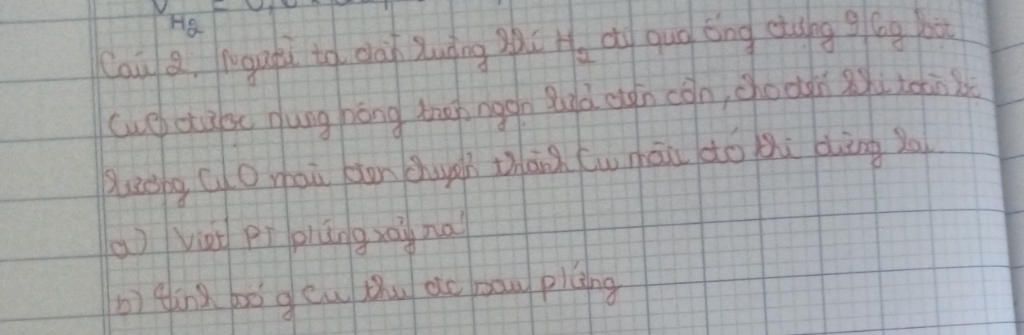 H2
Câu 2. Người ta dẫn luồng khí H2 đi qua ống đựng 9,6g bột
CuO được nung nóng trên ngọn lửa đèn cồn, cho đến khi toàn bộ
lượng CuO màu đen chuyển thành Cu màu đỏ thì dừng lại
a) Viết PT p/ứng xảy ra
b) tính số g Cu thu đc sau p/ứng